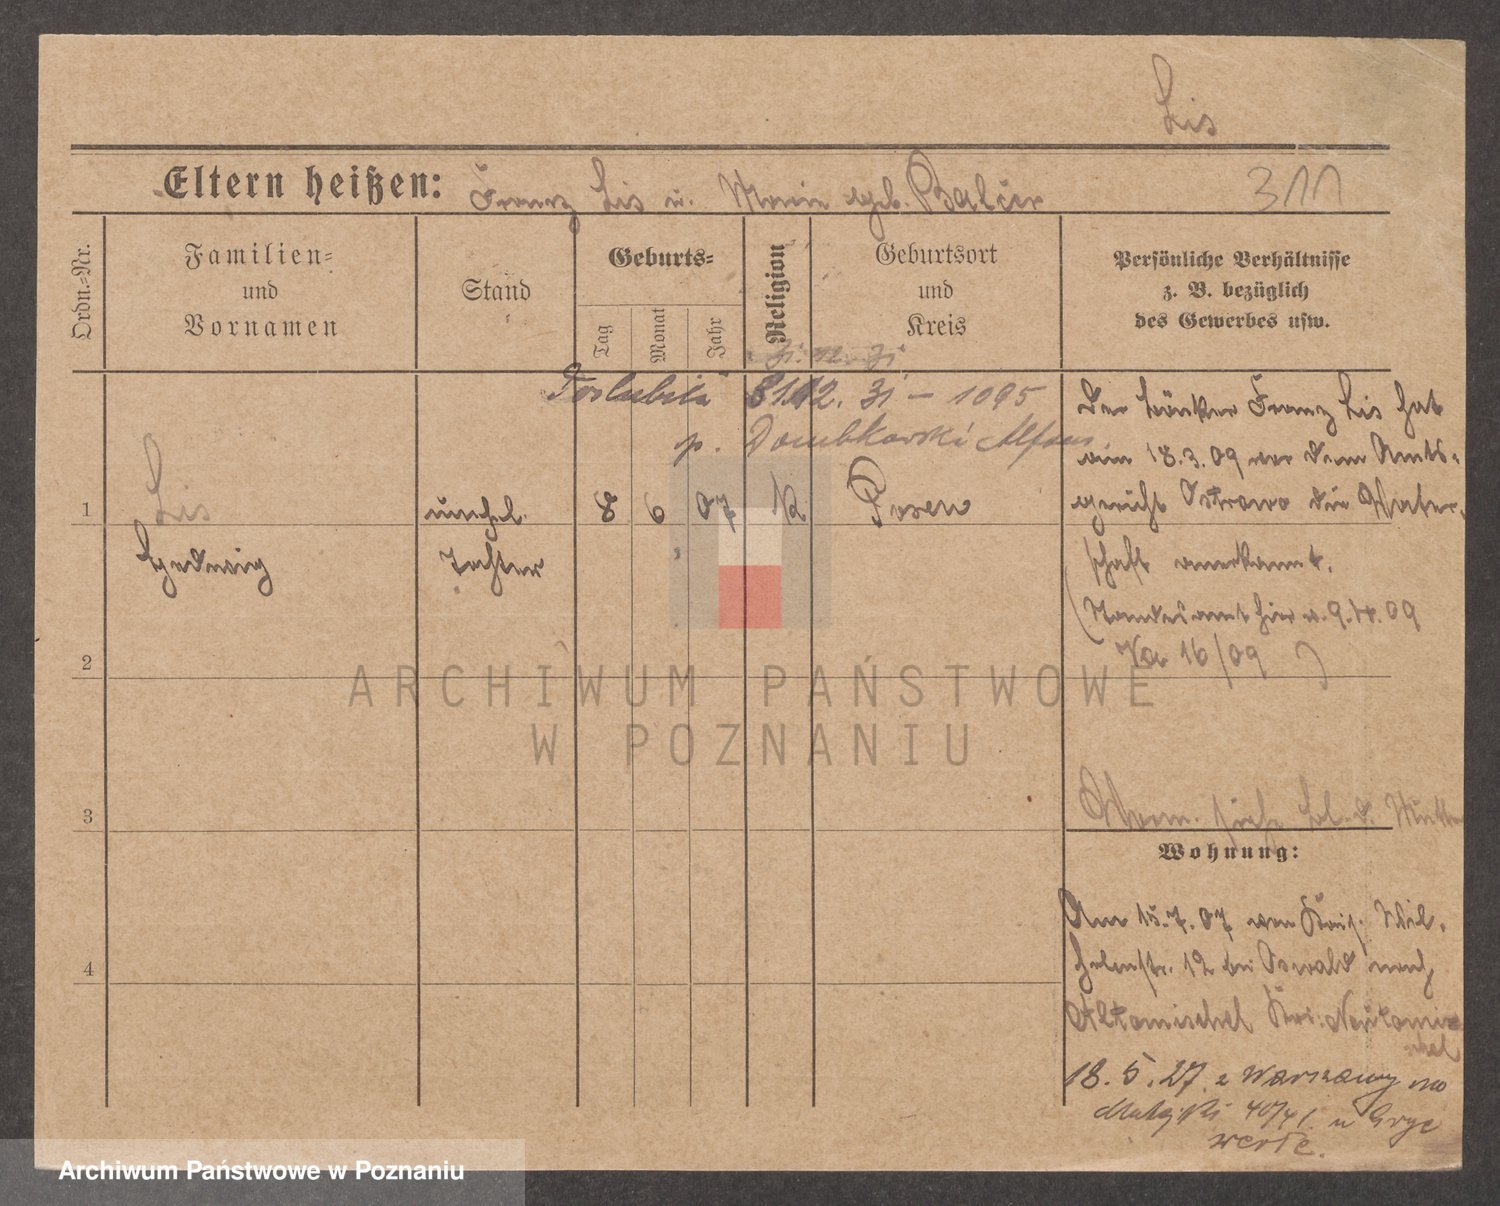 Lis
Eltern heißen: Franz Lis u. Marie geb. Balcer
311
Ordn.-Nr.
Familien-
und
Vornamen
Stand
Geburts-
Tag
Monat
Jahr
Religion
Geburtsort
und
Kreis
Persönliche Verhältnisse
z. B. bezüglich
des Gewerbes usw.
Poslubiła 31.12.31 – 1095
p. Dombkowski Alfons.
1
Lis
Hedwig
unehel.
Tochter
8
6
07
K
Posen
Der Franz Lis hat
am 18.3.09 vor dem Amts-
gericht Ostrowo die Vater-
schaft anerkannt.
(Standesamt hier v. 9.4.09
16/09)
2
3
4
siehe Bl. d. Mutter
Wohnung:
Am 15.7.07 von Kais. Wil-
helmstr. 12 bei Oswald nach
Alttomischel Krs. Neutomi-
schel
18.5.27 z Warszawy na
Matejki 40/41 u
ARCHIWUM PAŃSTWOWE
W POZNANIU
Archiwum Państwowe w Poznaniu